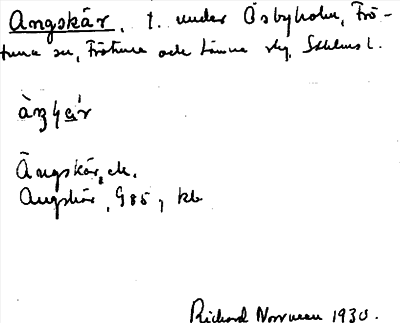 Ängskär, t. under Ösbyholm, Frö-
tuna sn, Frötuna och Länna skg, Sthlms l.
Ängskär, ek.
Ängskär, G 85, kb
Richard Norrman 1930.